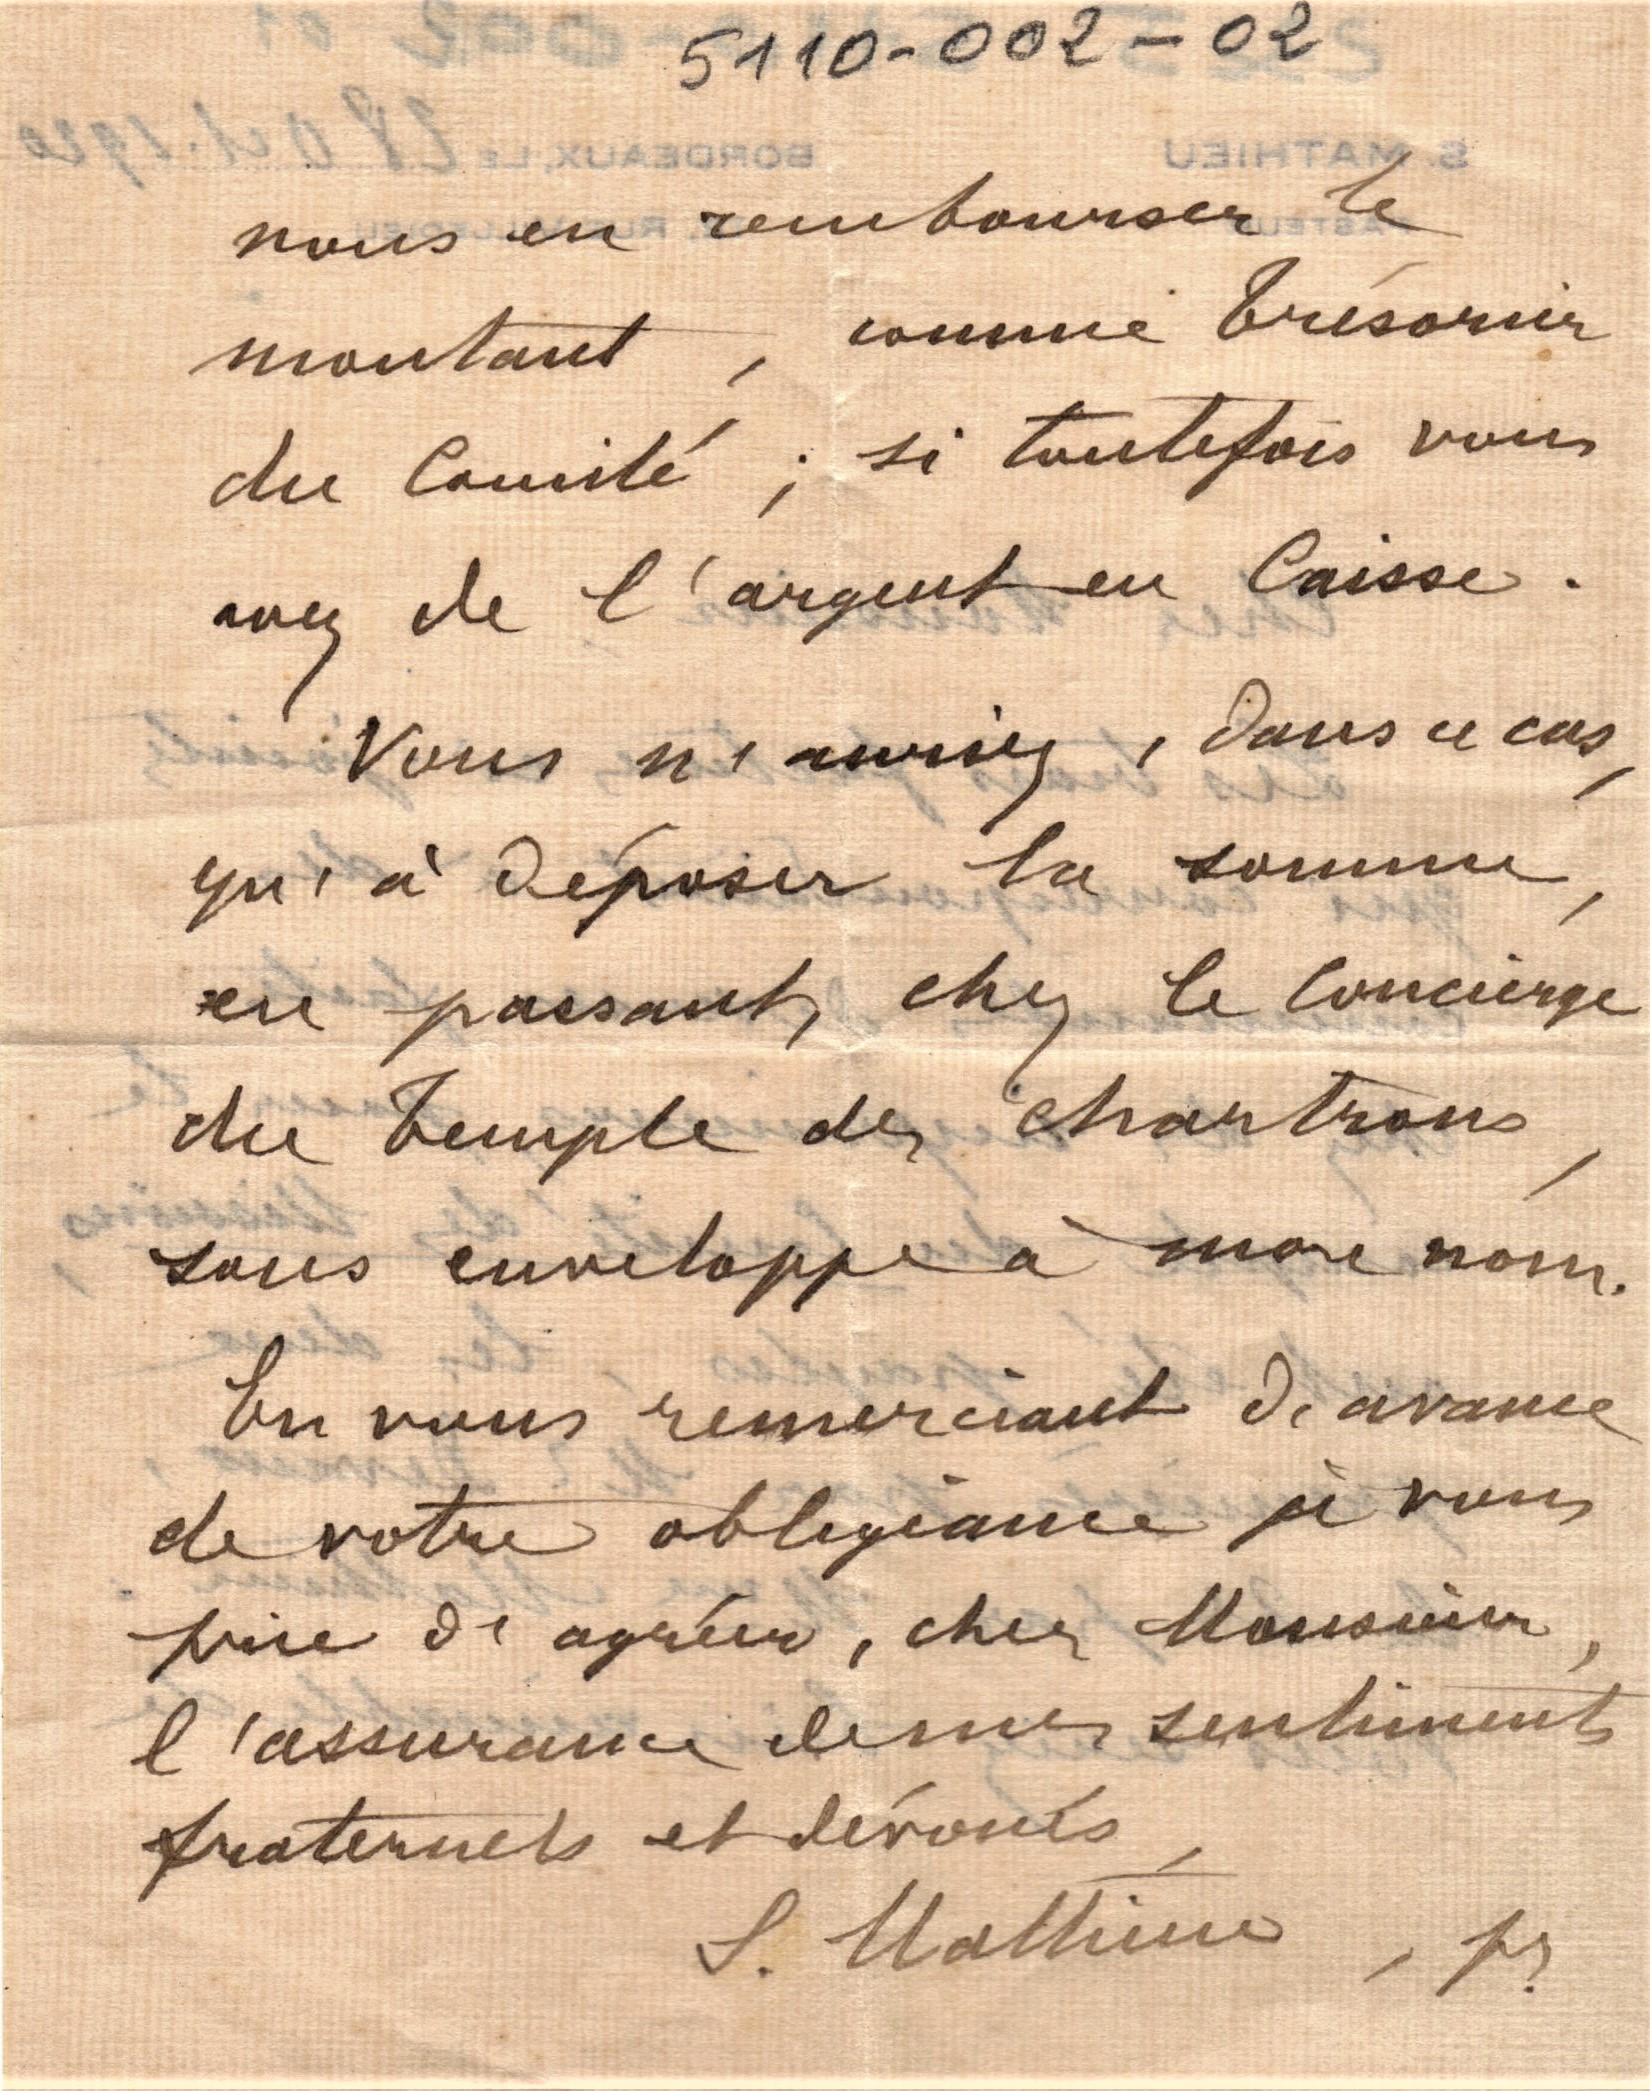 5110-002-02
nous en rembourser le
montant, comme Trésorier
du Comité ; si toutefois vous
avez de l'argent en Caisse.
Vous n'auriez, dans ce cas,
qu'à déposer la somme,
en passant, chez le Concierge
du Temple des Chartrons,
sous enveloppe à mon nom.
En vous remerciant d'avance
de votre obligeance je vous
prie d'agréer, cher Monsieur,
l'assurance de mes sentiments
fraternels et dévoués,
S. Mathieu, pr.